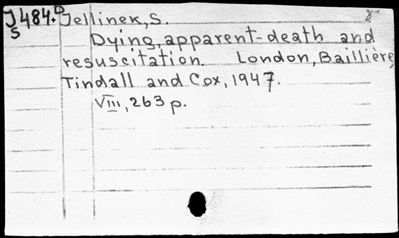 J484.D Jellinek, S. 8°
S
Dying, apparent-death and
resuscitation. London, Baillière,
Tindall and Cox, 1947.
VIII, 263 p.